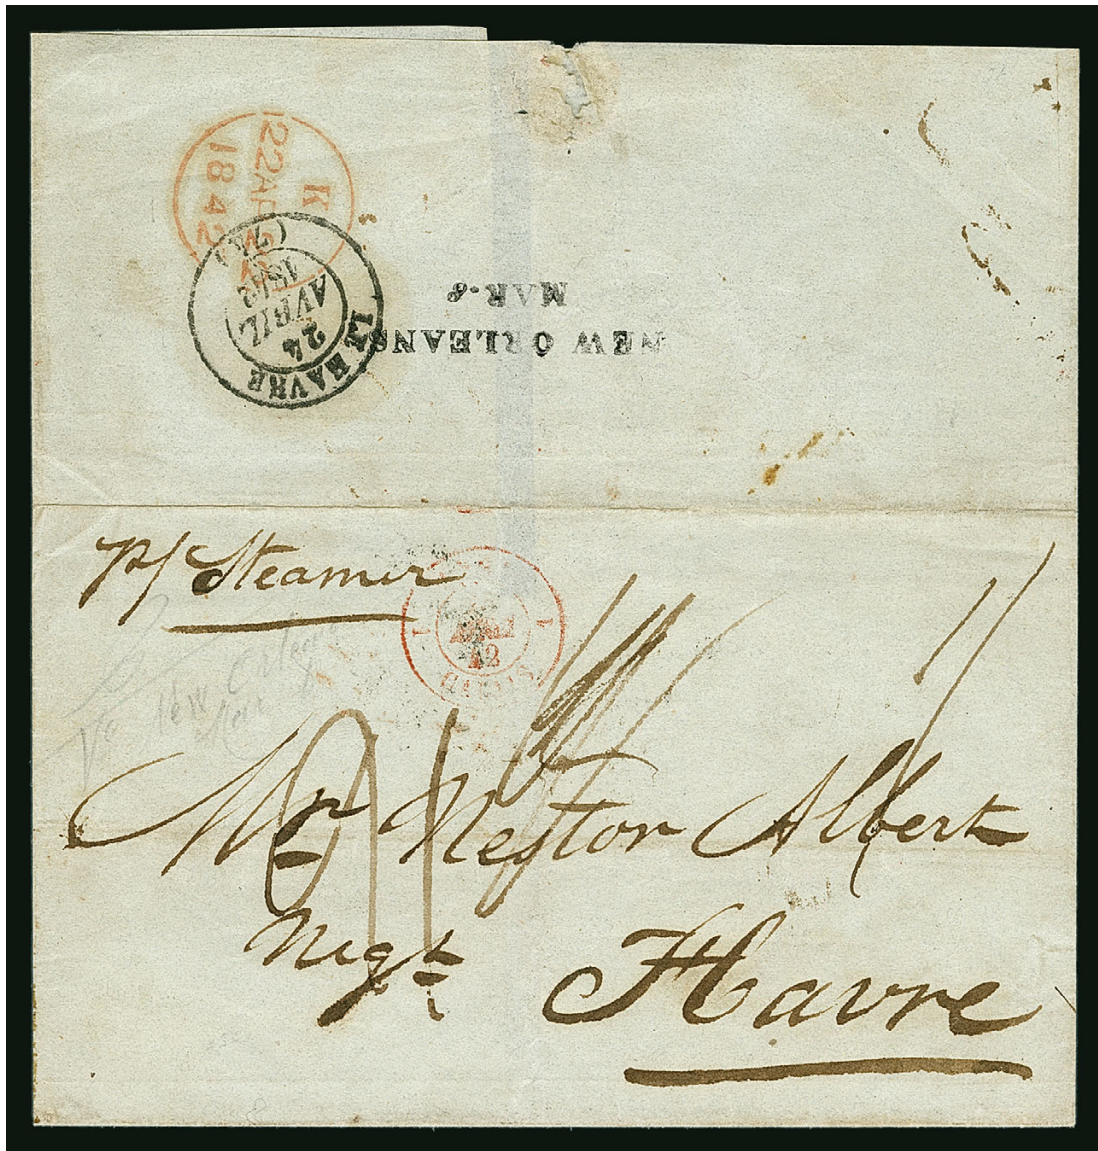 K
22 AP 22
1842
LE HAVRE
24
AVRIL
1842
(74)
NEW ORLEANS
MAR. 8
P/ Steamer
New Orleans
Mar 8
Mr Nestor Albert
Negt
Havre